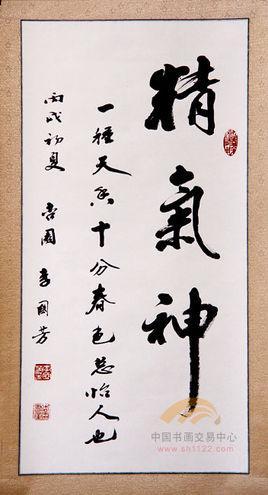 精氣神
一種天十分春色总怡人也
丙戌初夏 園 李國芳
中国书画交易中心
www.sh1122.com